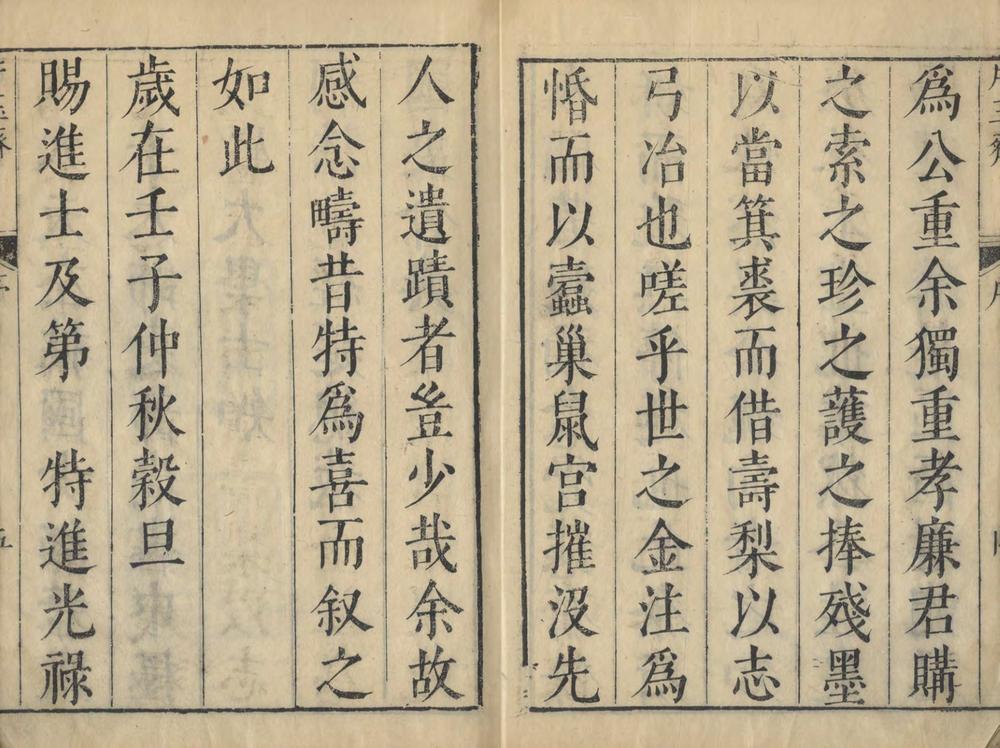 爲公重余獨重孝廉君購
之索之珍之護之捧殘墨
以當箕裘而借壽梨以志
弓冶也嗟乎世之金注爲
惛而以蠧巢鼠宮摧沒先
人之遺蹟者豈少哉余故
感念疇昔特爲喜而叙之
如此
歲在壬子仲秋穀旦
賜進士及第特進光祿